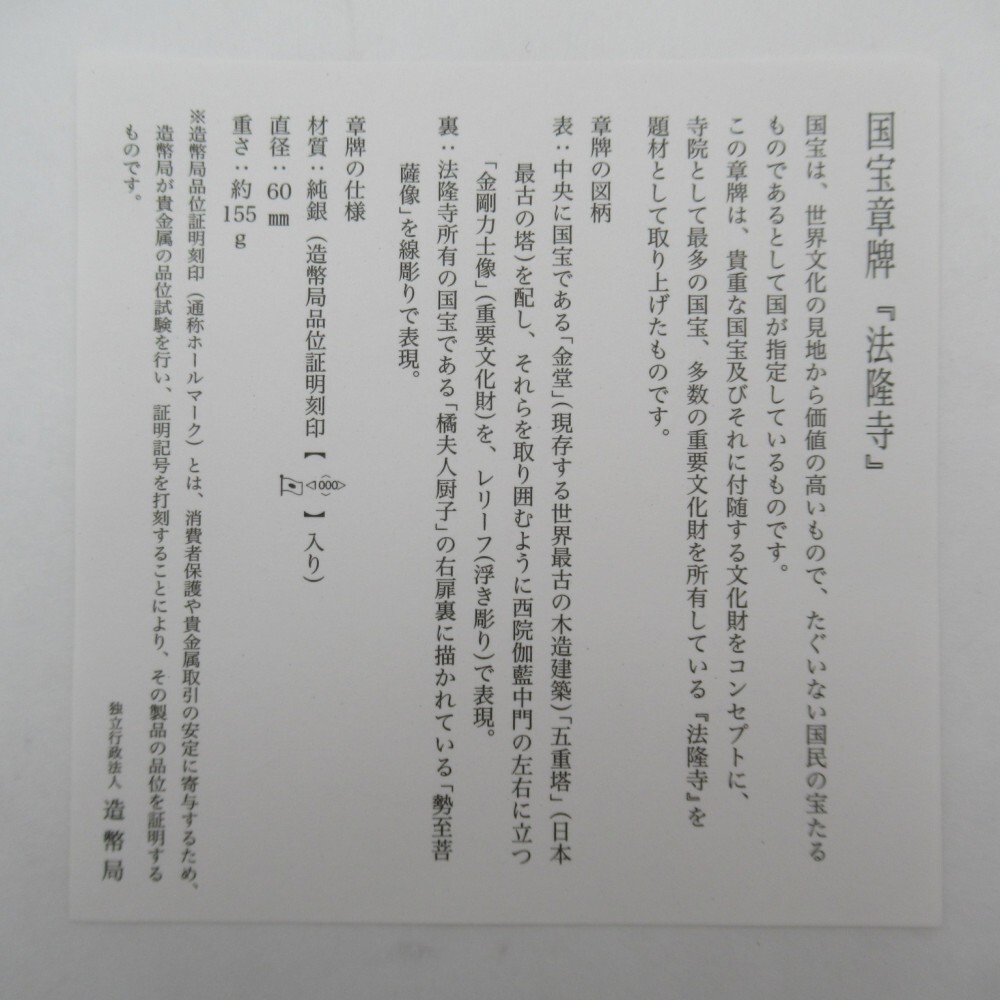 国宝章牌『法隆寺』
国宝は、世界文化の見地から価値の高いもので、たぐいない国民の宝たる
ものであるとして国が指定しているものです。
この章牌は、貴重な国宝及びそれに付随する文化財をコンセプトに、
寺院として最多の国宝、多数の重要文化財を所有している『法隆寺』を
題材として取り上げたものです。
章牌の図柄
表：中央に国宝である「金堂」（現存する世界最古の木造建築）「五重塔」（日本
最古の塔）を配し、それらを取り囲むように西院伽藍中門の左右に立つ
「金剛力士像」（重要文化財）を、レリーフ（浮き彫り）で表現。
裏：法隆寺所有の国宝である「橘夫人厨子」の右扉裏に描かれている「勢至菩
薩像」を線彫りで表現。
章牌の仕様
材質：純銀（造幣局品位証明刻印【1000】入り）
直径：60㎜
重さ：約155g
※造幣局品位証明刻印（通称ホールマーク）とは、消費者保護や貴金属取引の安定に寄与するため、
造幣局が貴金属の品位試験を行い、証明記号を打刻することにより、その製品の品位を証明する
ものです。
独立行政法人 造幣局